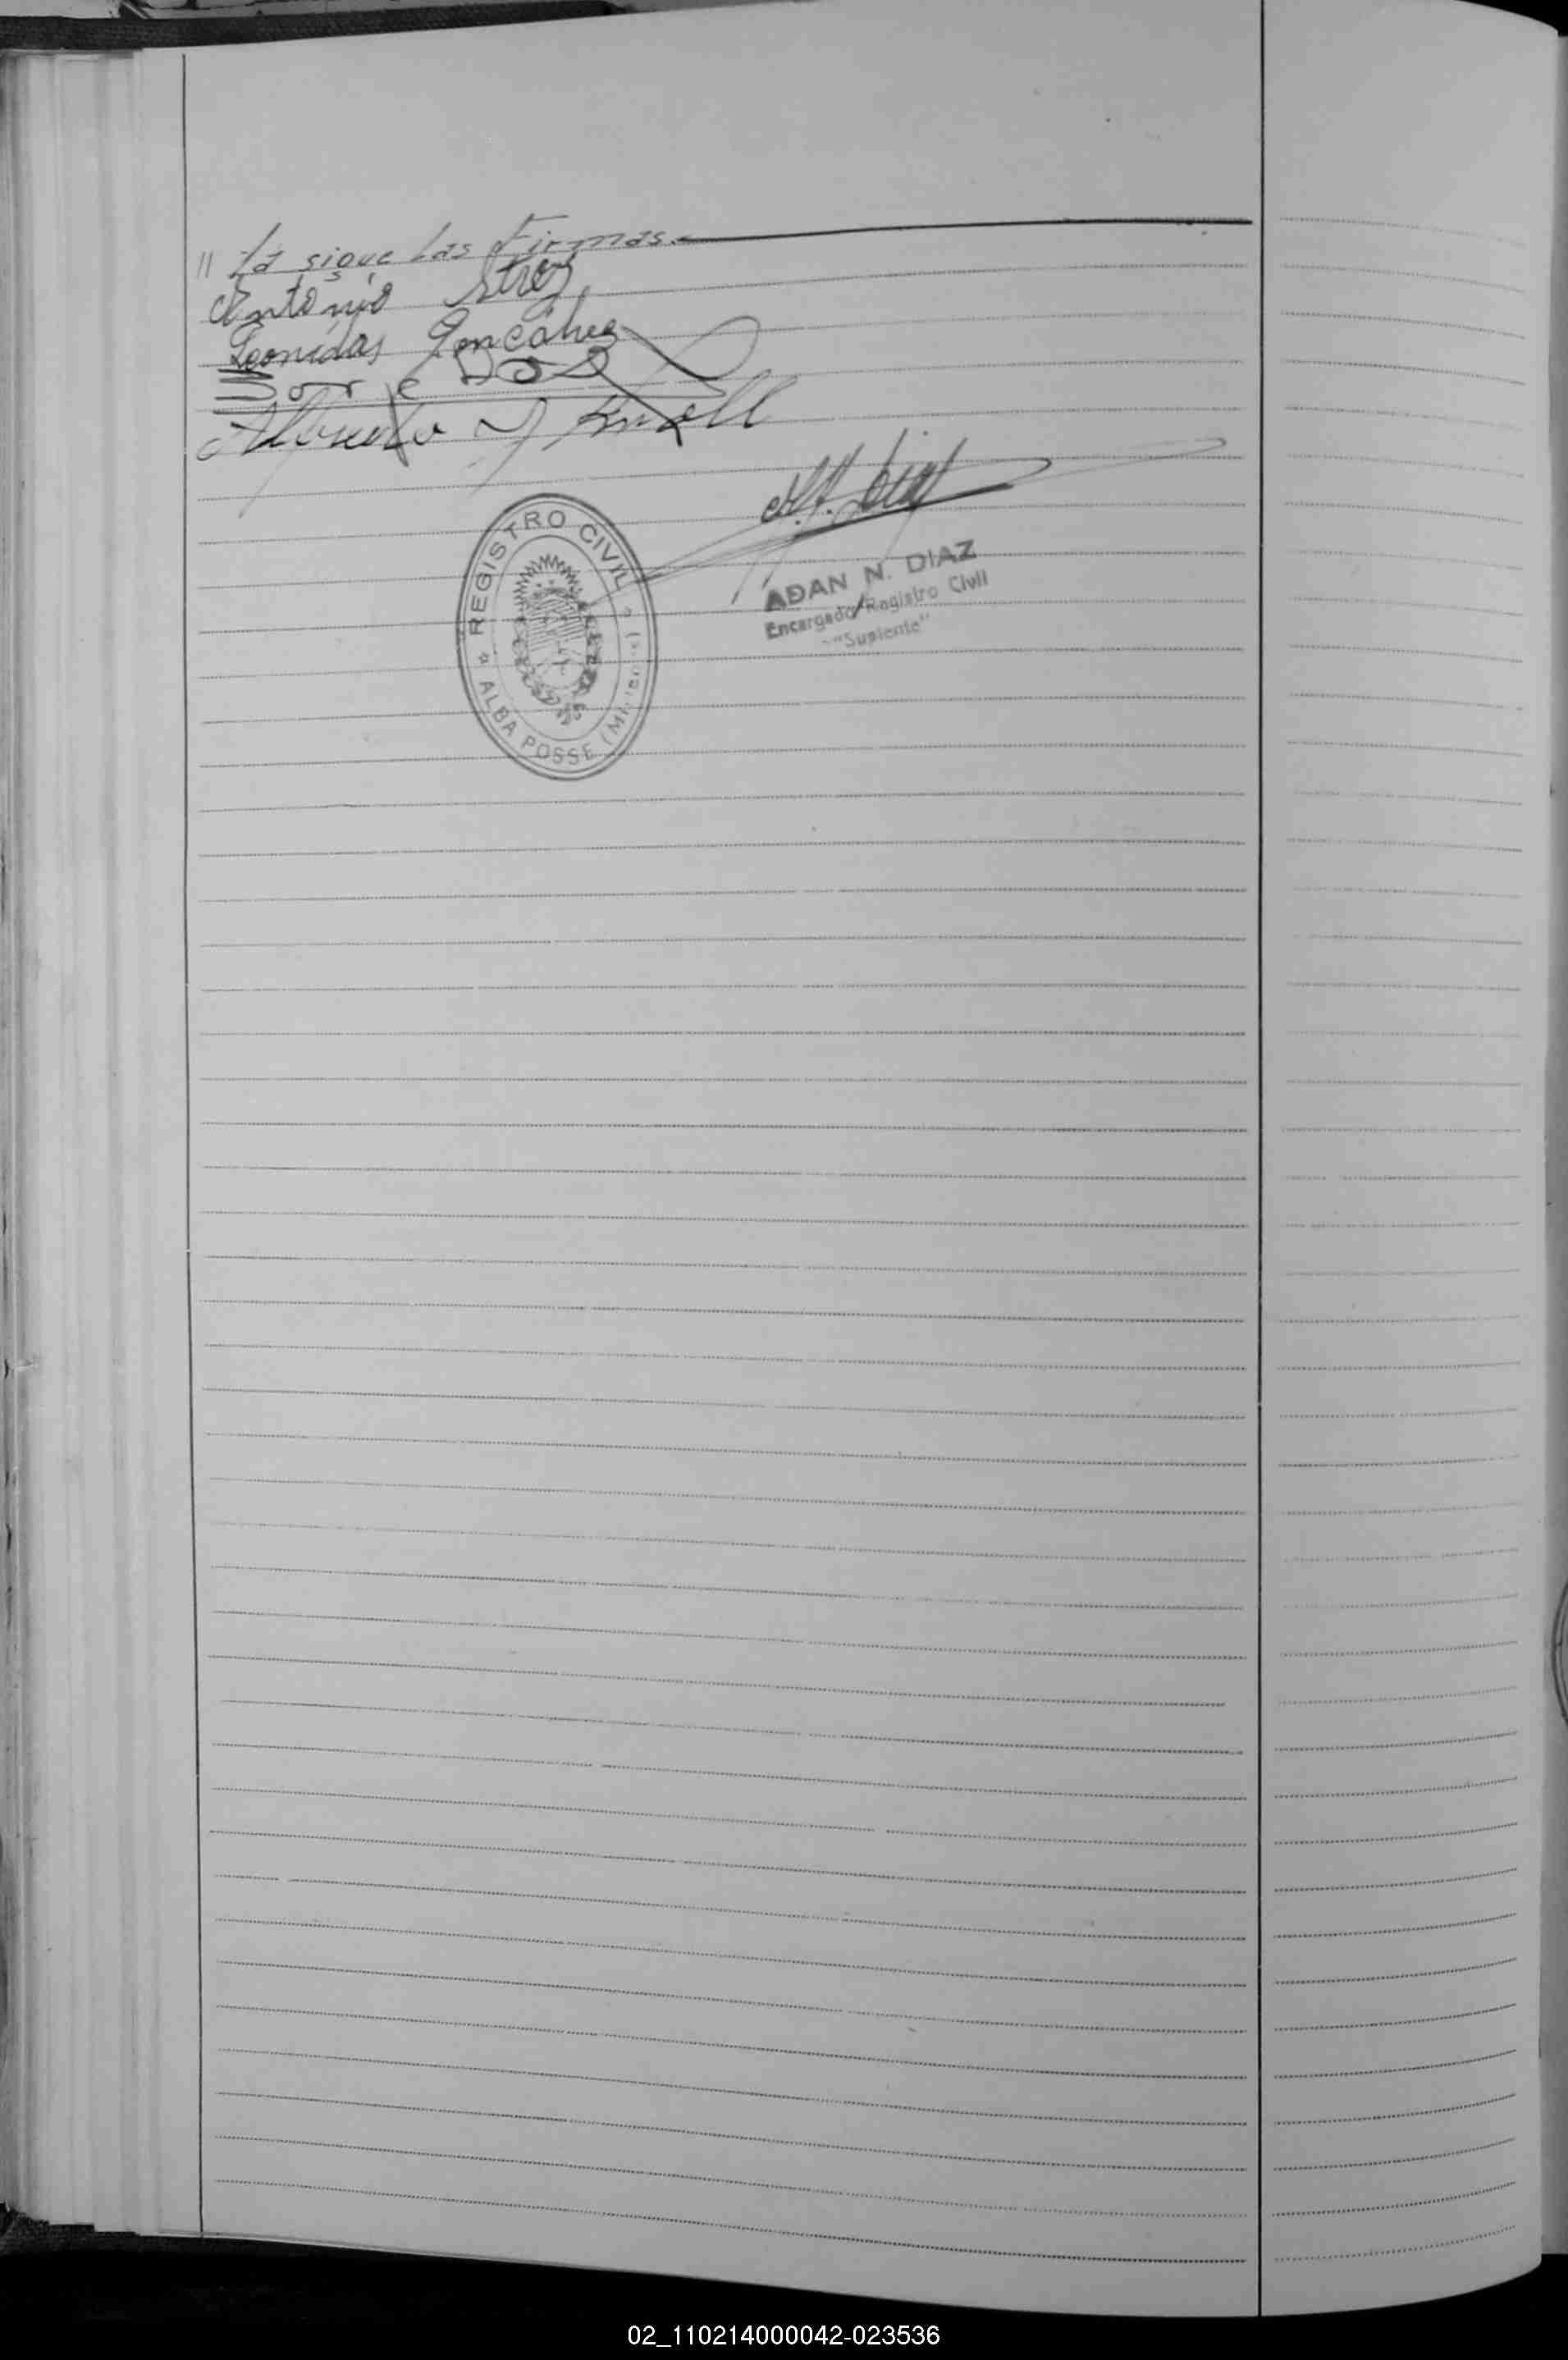 // ta sigue las firmas.-
Antonio
Leonidas Goncalves
Jorge
Alfredo J Knoll
A. N. Diaz
REGISTRO CIVIL
ALBA POSSE
ADAN N. DIAZ
Encargado Registro Civil
-"Suplente"
02_110214000042-023536